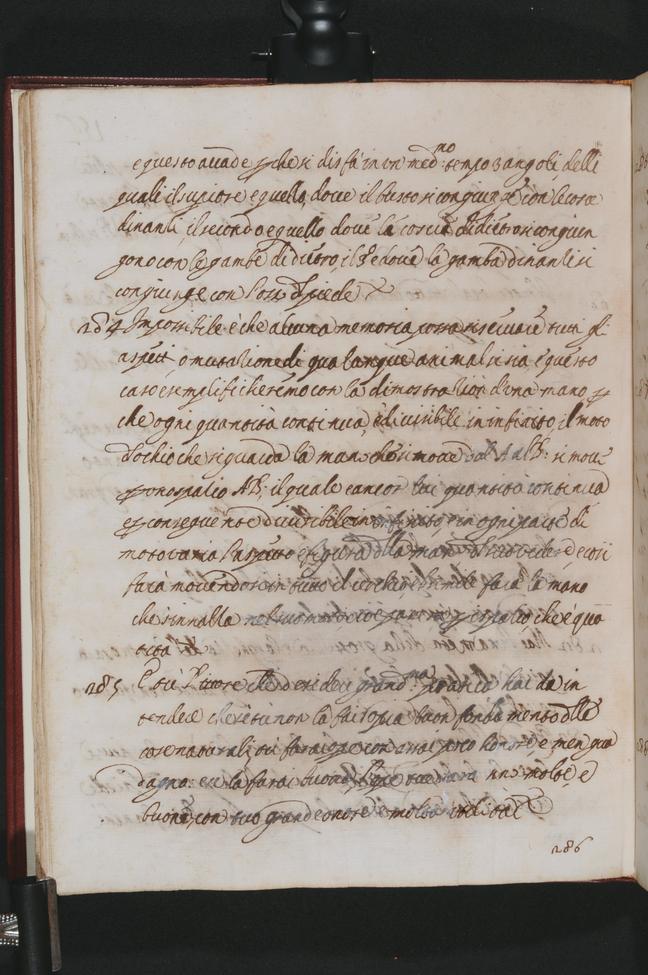 e questo accade perche si disfà in un med.mo tempo 3 angoli delli
quali il supiore e quello, dove il busto si congiunge con le coscie
dinanti, il secondo e quello dove la coscie di dietro si congiun
gono con le gambe di dietro, il 3º e dove la gamba dinanti si
congiunge con l'osso d'piede
284 Impossibile è che alcuna memoria possa riservare tutti gli
aspetti, o mutatione di qua lunque animal si sia, e questo
caso esemplificheremo con la dimostration d'una mano, p
che ogni quantità continua, è divisibile in infinito, il moto
d'ochio che riguarda la mano, che si move dal A al B: si move
p uno spatio AB; il quale è ancor lui quantità continua
et p conseguente divisibile in infinito, e in ogni parte di
moto varia l'aspetto e figura della mano e cosi
farà movendosi in tutto il cerchio, e il simile farà la mano
che s'innalla nel suo moto cioè passerà p spatio che è qua
tità
285 E tu Pittore che desideri grand.ma pratica hai da in
tendere che se tu non la fai sopra buon fondamento delle
cose naturali, tu farai opre con assai poco honore e men gua
dagno: e se la farai buona, l'opre tue saran molte, e
buone, con tuo grand'onore e molta utilità
286